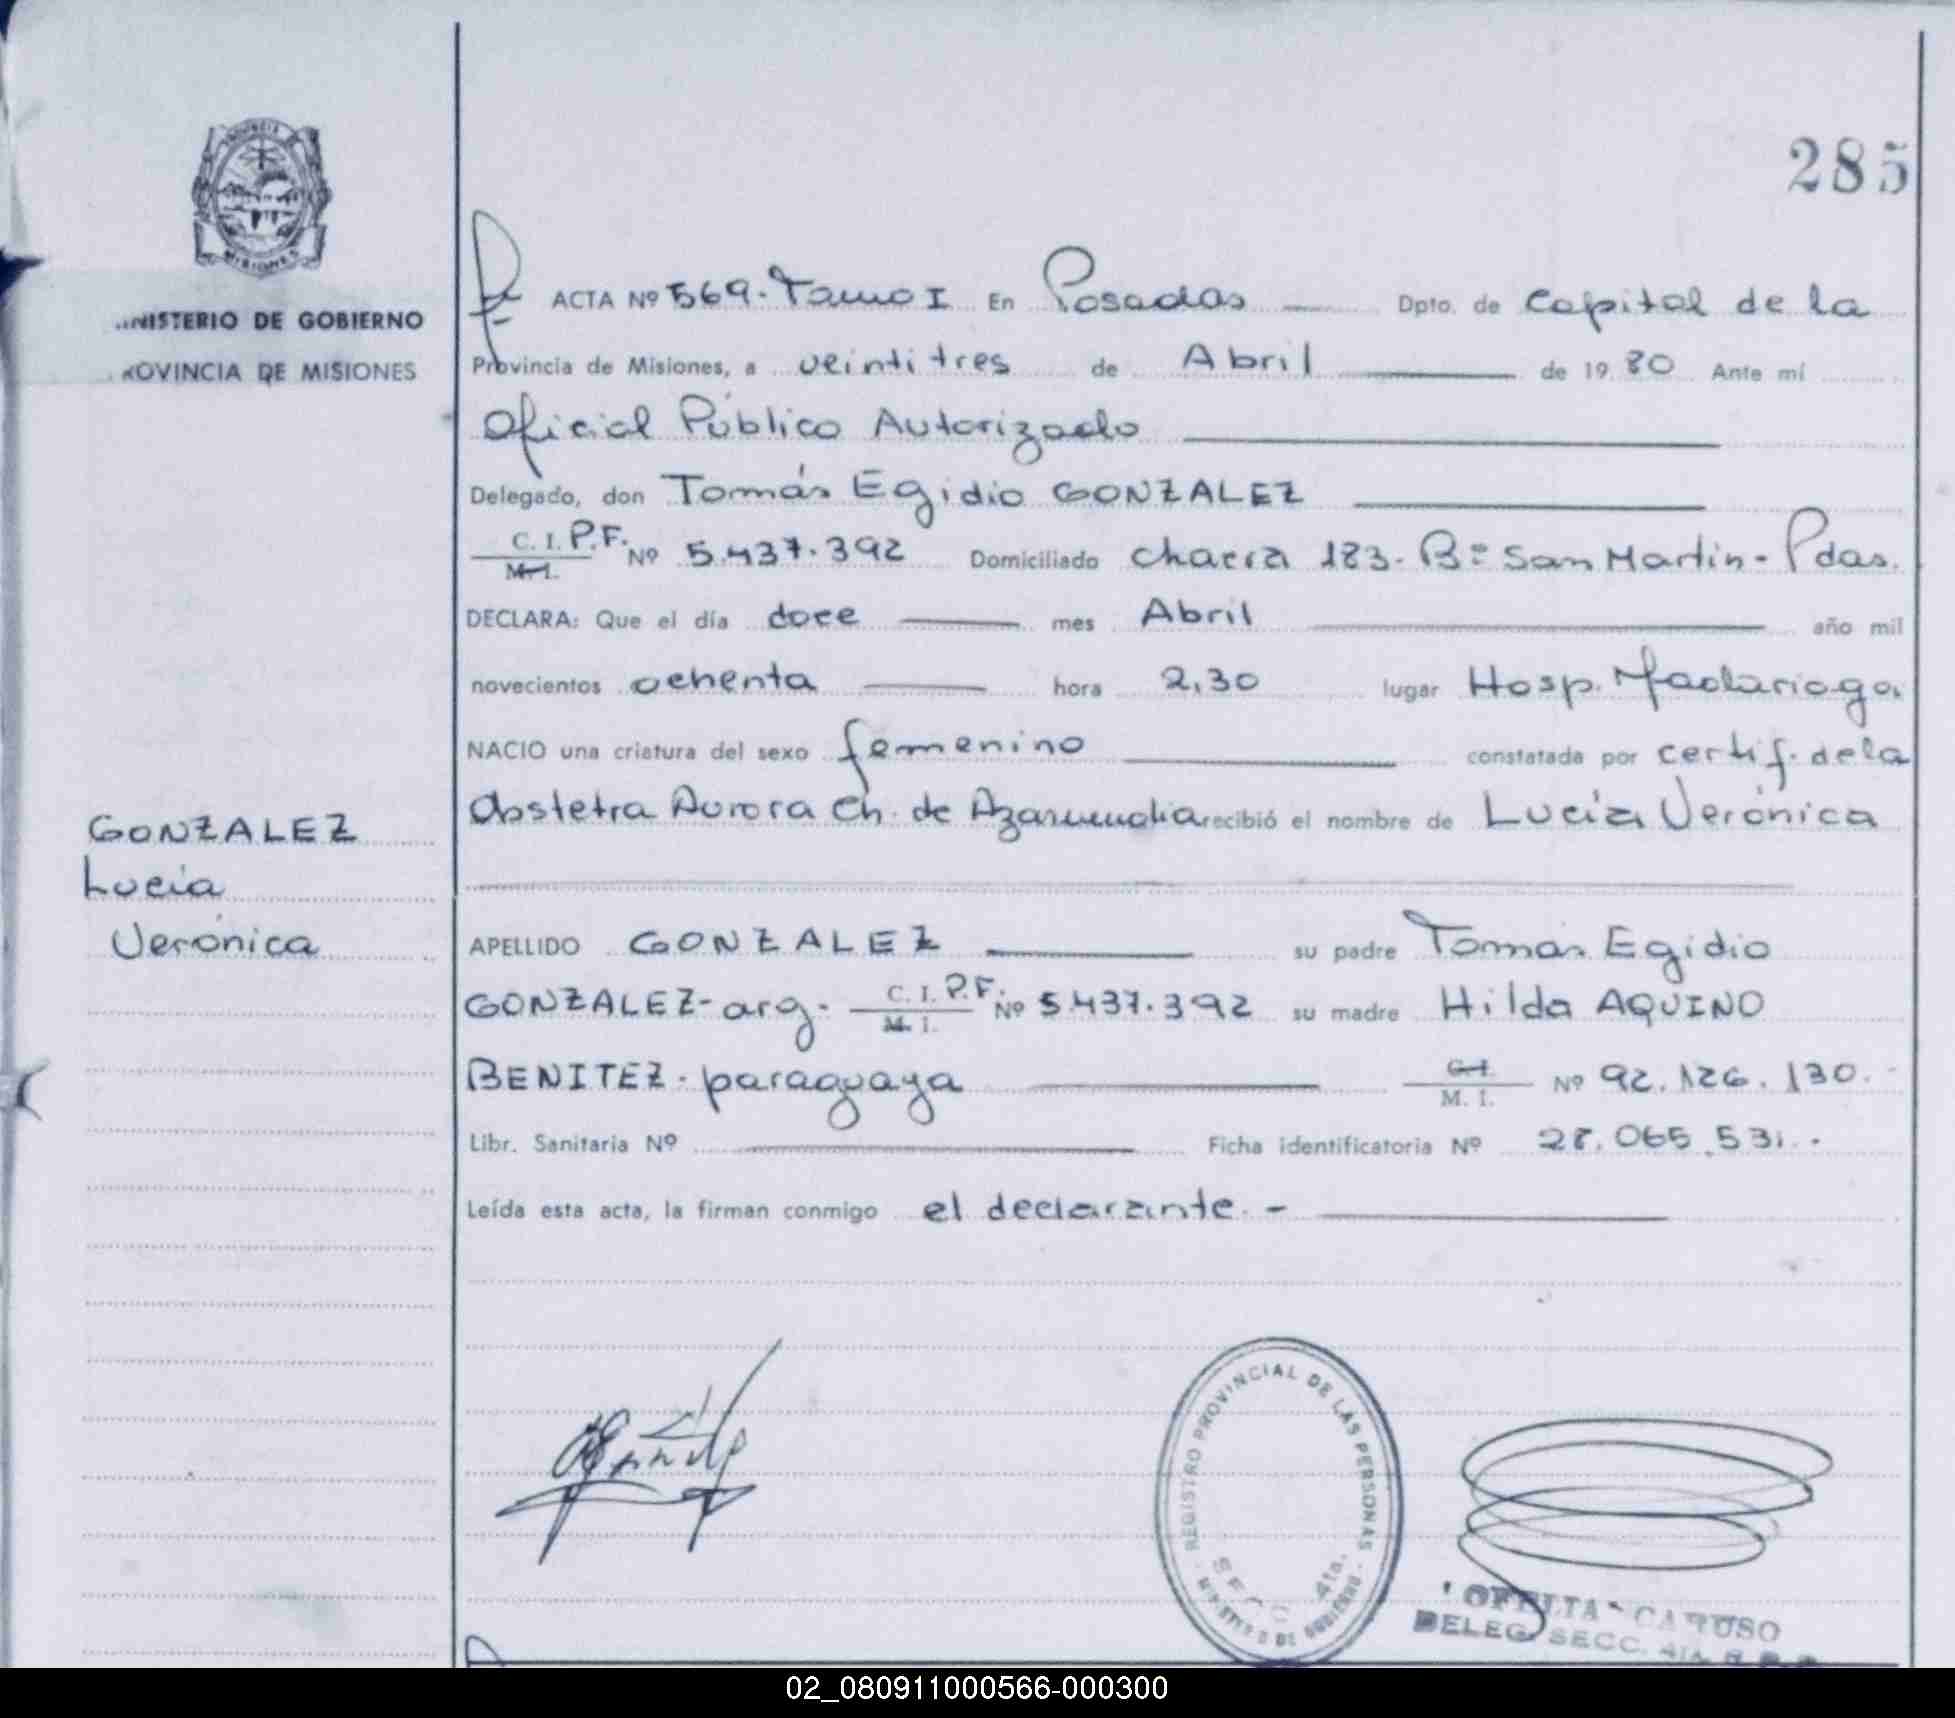 285
MINISTERIO DE GOBIERNO
PROVINCIA DE MISIONES
ACTA Nº 569. Tomo I En Posadas Dpto. de Capital de la
Provincia de Misiones, a veintitres de Abril de 19 80 Ante mí
Oficial Público Autorizado
Delegado, don Tomás Egidio GONZALEZ
C. I. P.F. Nº 5.437.392 Domiciliado chacra 183. Bº San Martín - Pdas.
M. I.
DECLARA: Que el día doce mes Abril año mil
novecientos ochenta hora 2,30 lugar Hosp. Madariaga
NACIO una criatura del sexo femenino constatada por certif. de la
Obstetra Aurora Ch. de recibió el nombre de Lucía Verónica
GONZALEZ
Lucía
Verónica
APELLIDO GONZALEZ su padre Tomás Egidio
GONZALEZ - arg. C. I. P.F. Nº 5.437.392 su madre Hilda AQUINO
M. I.
BENITEZ - paraguaya C. I. Nº 92.126.130.-
M. I.
Libr. Sanitaria Nº Ficha identificatoria Nº 28.065.531.-
Leída esta acta, la firman conmigo el declarante. -
REGISTRO PROVINCIAL DE LAS PERSONAS
SECC. 4ta.
MINISTERIO DE GOBIERNO
OFELIA CARUSO
DELEG. SECC. 4TA.
02_080911000566-000300